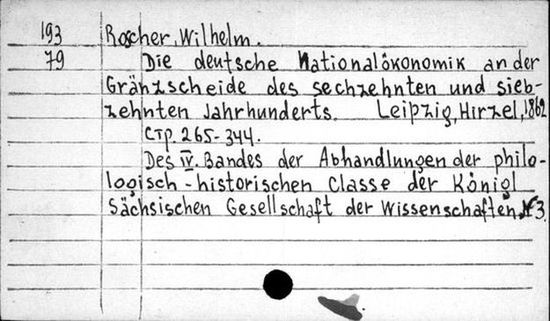 193 Roscher, Wilhelm.
79 Die deutsche Nationalökonomik an der
Gränzscheide des sechzehnten und sieb-
zehnten Jahrhunderts. Leipzig, Hirzel, 1862
Стр. 265-344.
Des IV. Bandes der Abhandlungen der philo-
logisch-historischen Classe der Königl
Sächsischen Gesellschaft der Wissenschaften, № 3.